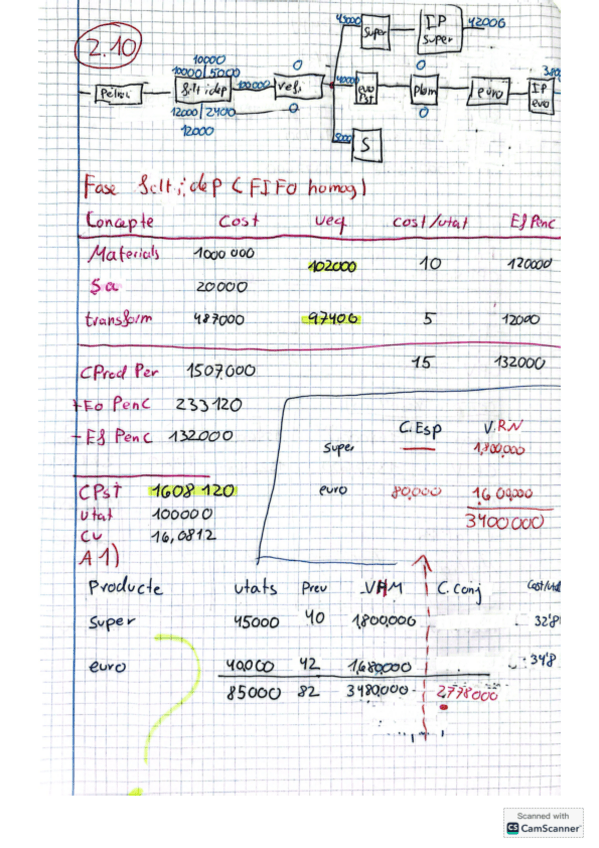 2.10
45000 super IP super 42006
10000
10000 | 5000
0
0
filt i dep 100000 refi
euro IP euro
12000 | 2400
0
0
12000
5000 S
Fase filt i dep (FIFO homog)
Concepte Cost Ueq Cost/utat Ef Penc
Materials 1000 000 102000 10 120000
20000
transform 487000 97400 5 12000
15 132000
CProd Per 1507,000
+ Eo Penc 233120
- Ef Penc 132000
C.Esp V.RN
super — 1,800,000
euro 80,000 1,600,000
3400000
CPst 1608.120
utat 100000
Cu 16,0812
A1)
Producte utats Preu VHM C.conj
super 45000 40 1,800,000 32'8
euro 40,000 42 1,680,000 34'8
85000 82 3480,000 2,778000
?
Scanned with
CS CamScanner